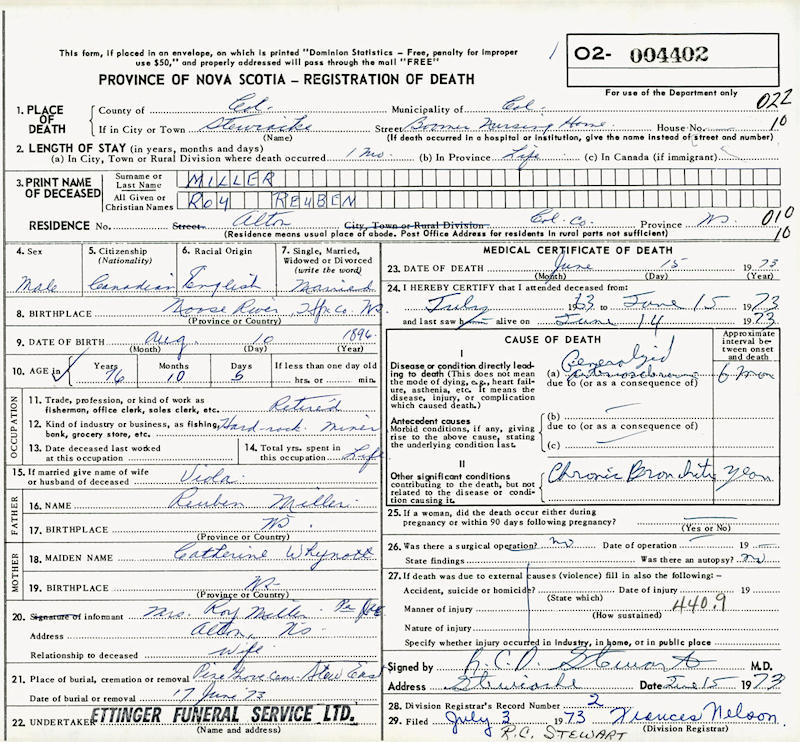 This form, if placed in an envelope, on which is printed "Dominion Statistics — Free, penalty for improper
use $50," and properly addressed will pass through the mail "FREE"
02- 004402
For use of the Department only
PROVINCE OF NOVA SCOTIA — REGISTRATION OF DEATH
022
10
1. PLACE OF DEATH
County of Col. Municipality of Col.
If in City or Town Stewiacke (Name) Street Boomer Nursing Home House No.
(If death occurred in a hospital or institution, give the name instead of street and number)
2. LENGTH OF STAY (in years, months and days)
(a) In City, Town or Rural Division where death occurred 1 mo. (b) In Province Life (c) In Canada (if immigrant)
3. PRINT NAME OF DECEASED
Surname or Last Name MILLER
All Given or Christian Names ROY REUBEN
RESIDENCE No. Street Alton City, Town or Rural Division Col. Co. Province NS 010
10
(Residence means usual place of abode. Post Office Address for residents in rural parts not sufficient)
4. Sex Male
5. Citizenship (Nationality) Canadian
6. Racial Origin English
7. Single, Married, Widowed or Divorced (write the word) Married
8. BIRTHPLACE Moose River, Hfx Co. NS
(Province or Country)
9. DATE OF BIRTH Aug 10 1896
(Month) (Day) (Year)
10. AGE in Years 76 Months 10 Days 5 If less than one day old hrs. or min.
OCCUPATION
11. Trade, profession, or kind of work as fisherman, office clerk, sales clerk, etc. Retired
12. Kind of industry or business, as fishing, bank, grocery store, etc. Hard-rock Miner
13. Date deceased last worked at this occupation
14. Total yrs. spent in this occupation Life
15. If married give name of wife or husband of deceased Viola
FATHER
16. NAME Reuben Miller
17. BIRTHPLACE NS
MOTHER
18. MAIDEN NAME Catherine Whynott
19. BIRTHPLACE NS
(Province or Country)
20. Signature of informant Mrs. Roy Miller
Address Alton, NS
Relationship to deceased Wife
21. Place of burial, cremation or removal Pine Grove Cem. Stew East
Date of burial or removal 17 June 73
22. UNDERTAKER ETTINGER FUNERAL SERVICE LTD.
(Name and address)
MEDICAL CERTIFICATE OF DEATH
23. DATE OF DEATH June 15 1973
(Month) (Day) (Year)
24. I HEREBY CERTIFY that I attended deceased from:
July 1963 to June 15 1973
and last saw him alive on June 14 1973
CAUSE OF DEATH
Approximate interval between onset and death
I
Disease or condition directly leading to death (This does not mean the mode of dying, e.g., heart failure, asthenia, etc. It means the disease, injury, or complication which caused death.)
(a) Generalized 6 mon
due to (or as a consequence of)
Antecedent causes
Morbid conditions, if any, giving rise to the above cause, stating the underlying condition last.
(b)
due to (or as a consequence of)
(c)
II
Other significant conditions
contributing to the death, but not related to the disease or condition causing it.
Chronic Bronchitis
25. If a woman, did the death occur either during pregnancy or within 90 days following pregnancy?
(Yes or No)
26. Was there a surgical operation? no Date of operation 19
State findings Was there an autopsy? no
27. If death was due to external causes (violence) fill in also the following: —
Accident, suicide or homicide? Date of injury 19
(State which)
Manner of injury 440.9
(How sustained)
Nature of injury
Specify whether injury occurred in industry, in home, or in public place
Signed by R.C.D. Stewart M.D.
Address Stewiacke Date June 15 1973
28. Division Registrar's Record Number 2
29. Filed July 3 1973 Frances Nelson
(Division Registrar)
R.C. STEWART